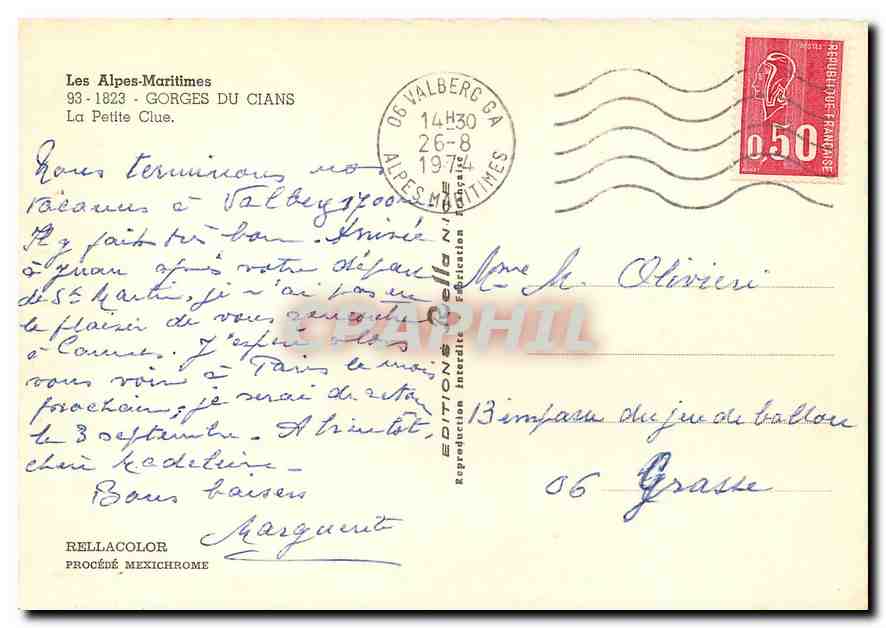 Les Alpes-Maritimes
93 - 1823 - GORGES DU CIANS
La Petite Clue.
Nous terminons nos
vacances à Valberg 1700m.
Il y fait très bon. Arrivée
à Juan après votre départ
de St Martin, je n'ai pas eu
le plaisir de vous rencontrer
à Cannes. J'espère alors
vous voir à Paris le mois
prochain, je serai de retour
le 3 septembre. A bientôt,
chère Madeleine -
Bons baisers
Marguerite
RELLACOLOR
PROCÉDÉ MEXICHROME
EDITIONS Rella NICE
Reproduction interdite Fabrication Française
06 VALBERG GA
14H30
26-8
1974
ALPES MARITIMES
REPUBLIQUE FRANÇAISE
0,50
Mme M. Olivieri
13 impasse du jeu de ballon
06 Grasse
CPAPHIL